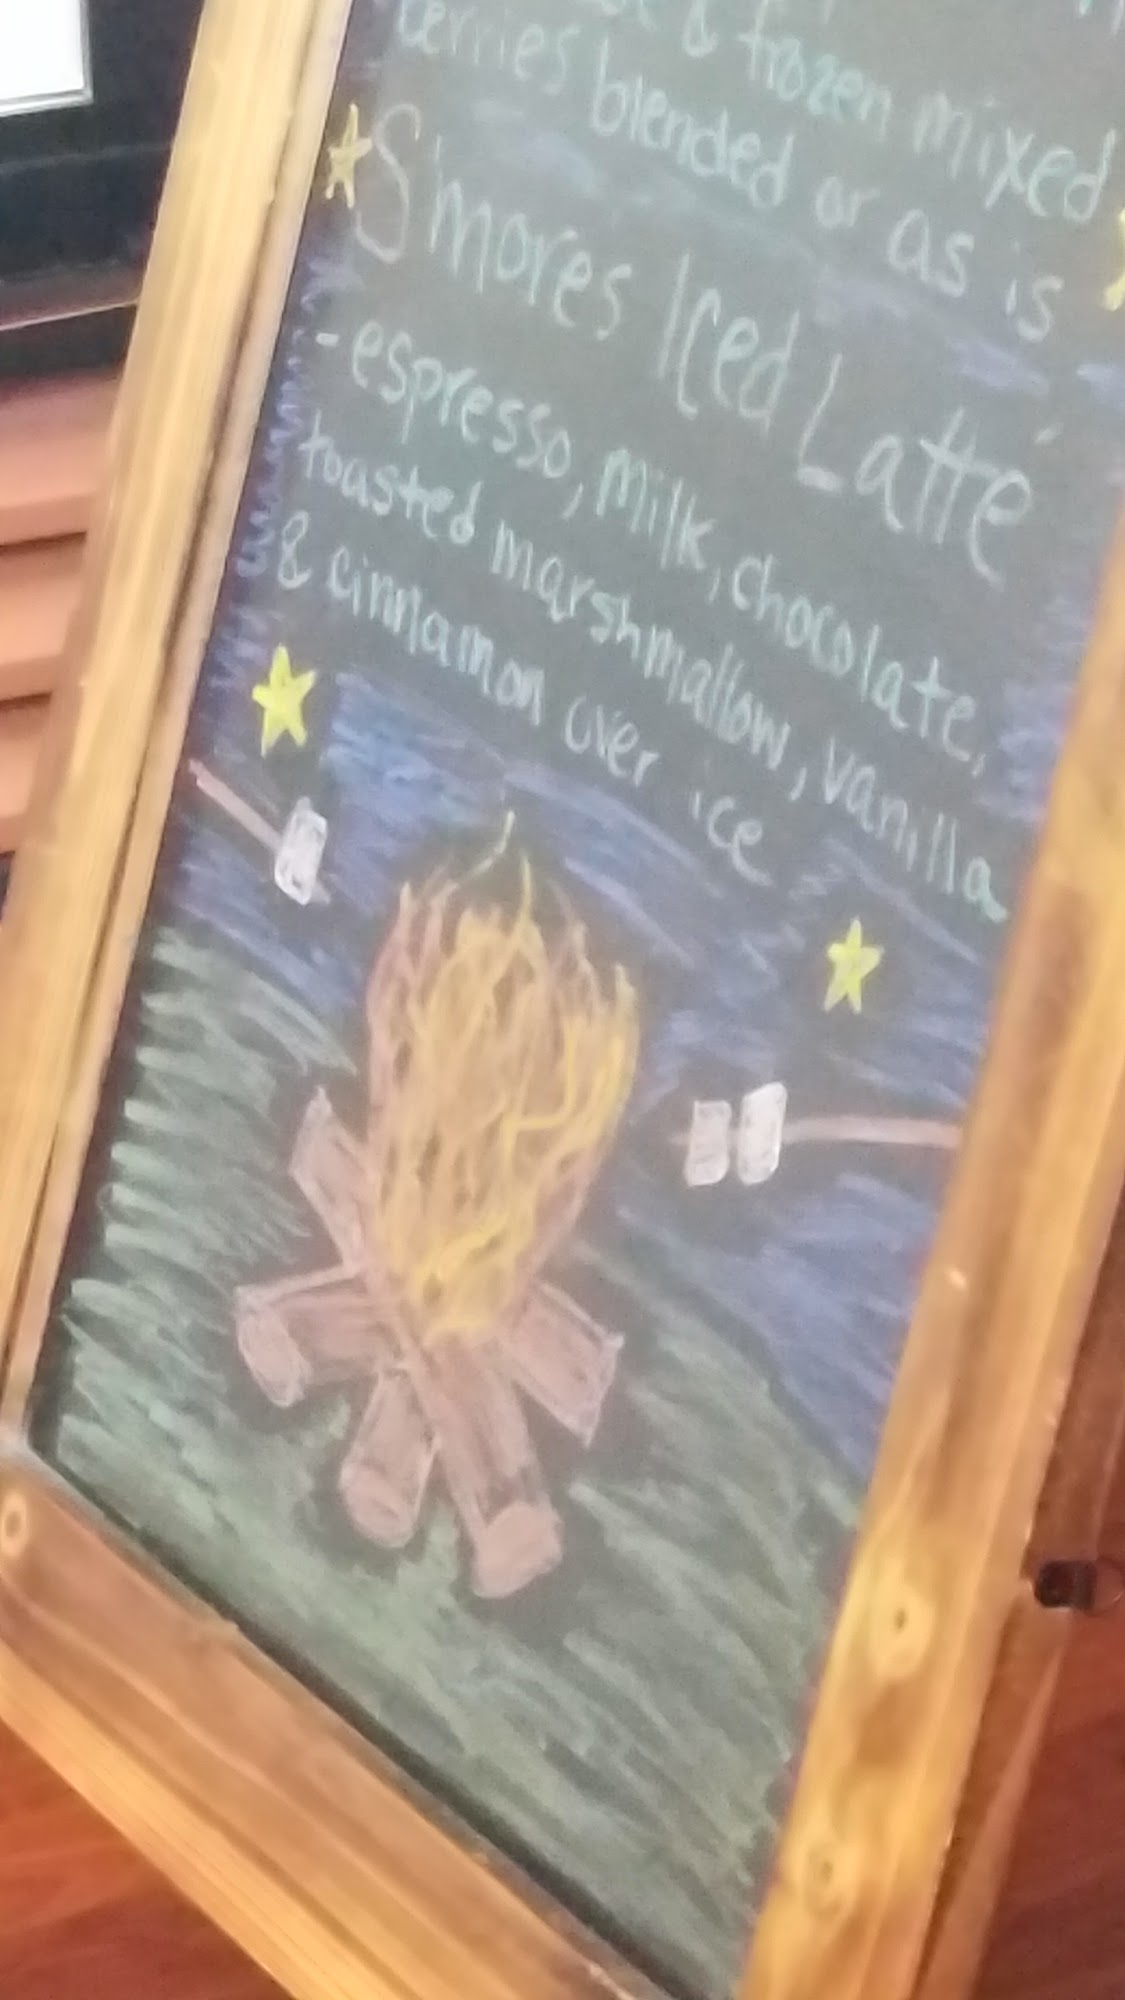 & frozen mixed
berries blended or as is
S'mores Iced Latte
-espresso, milk, chocolate,
toasted marshmallow, vanilla
& cinnamon over ice